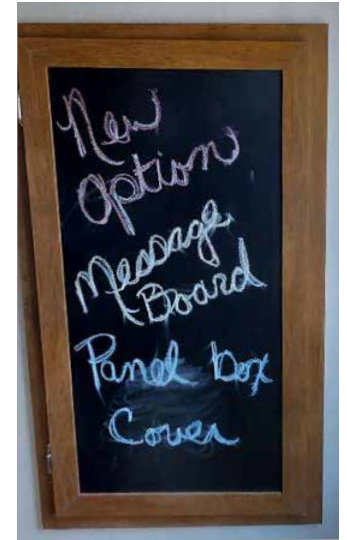 New
Option
Message
Board
Panel box
Cover